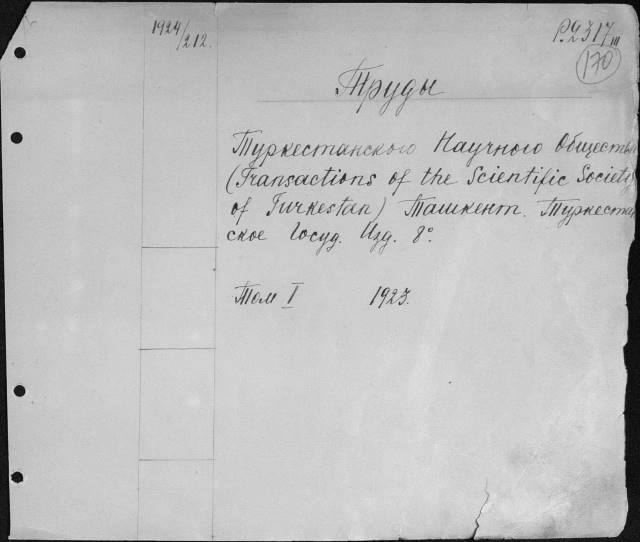 1924/212.
P.2317 III
170
Труды
Туркестанского Научного Общества
(Transactions of the Scientific Society
of Turkestan) Ташкент. Туркестан
ское Госуд. Изд. 8°.
Том I 1923.